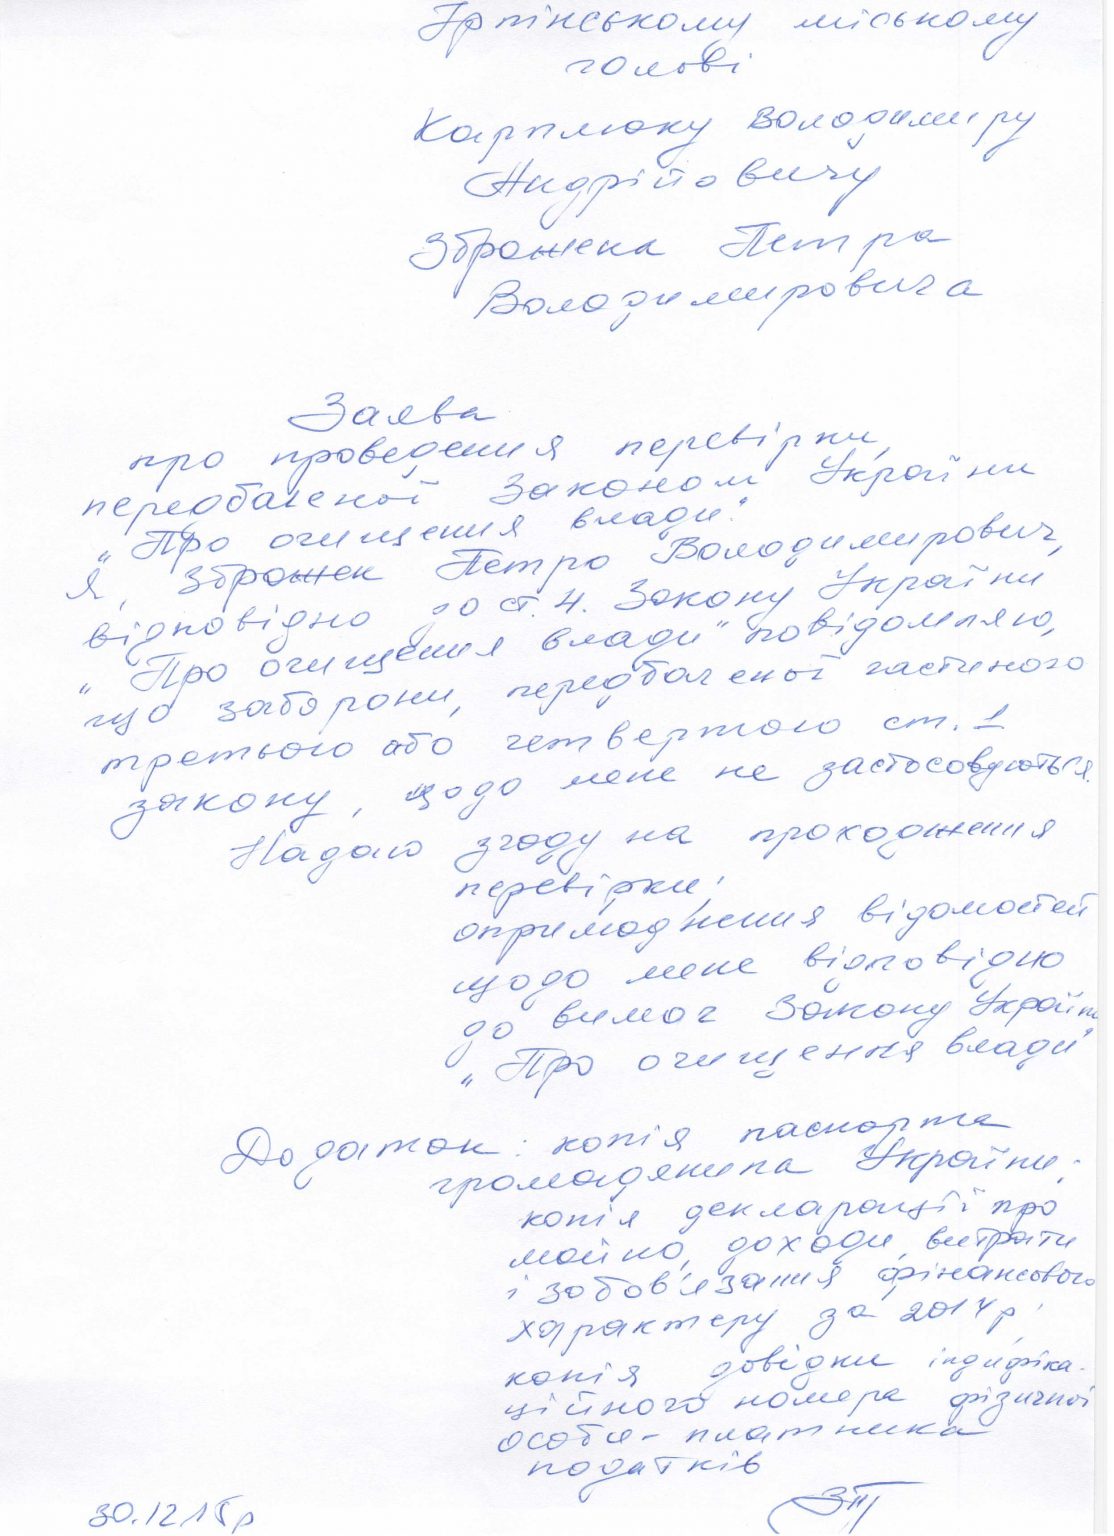 Ірпінському міському
голові
Карплюку Володимиру
Андрійовичу
Зброжека Петра
Володимировича
Заява
про проведення перевірки,
передбаченої Законом України
„Про очищення влади".
Я, Зброжек Петро Володимирович,
відповідно до ст. 4. Закону України
„Про очищення влади" повідомляю,
що заборони, передбаченої частиною
третьою або четвертою ст. 1
закону, щодо мене не застосовуються.
Надаю згоду на проходження
перевірки;
оприлюднення відомостей
щодо мене відповідно
до вимог Закону України
„Про очищення влади"
Додаток: копія паспорта
громадянина України;
копія декларації про
майно, доходи, витрати
і зобов'язання фінансового
характеру за 2014 р;
копія довідки індифіка-
ційного номера фізичної
особи-платника
податків
30.12.15р